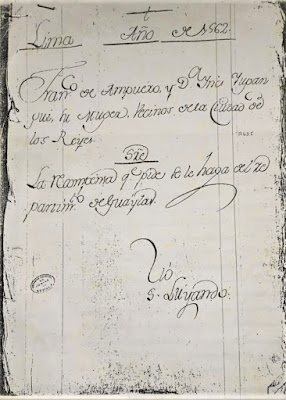 t
Lima Año de 1562.
Franco de Ampuero, y Da Ines Yupan
qui, su Muger, Vecinos de esta Ciudad de
los Reyes.
Sre
La recompensa qe pide se le haga del re
partimto de Guaylas.
S. Luyando.